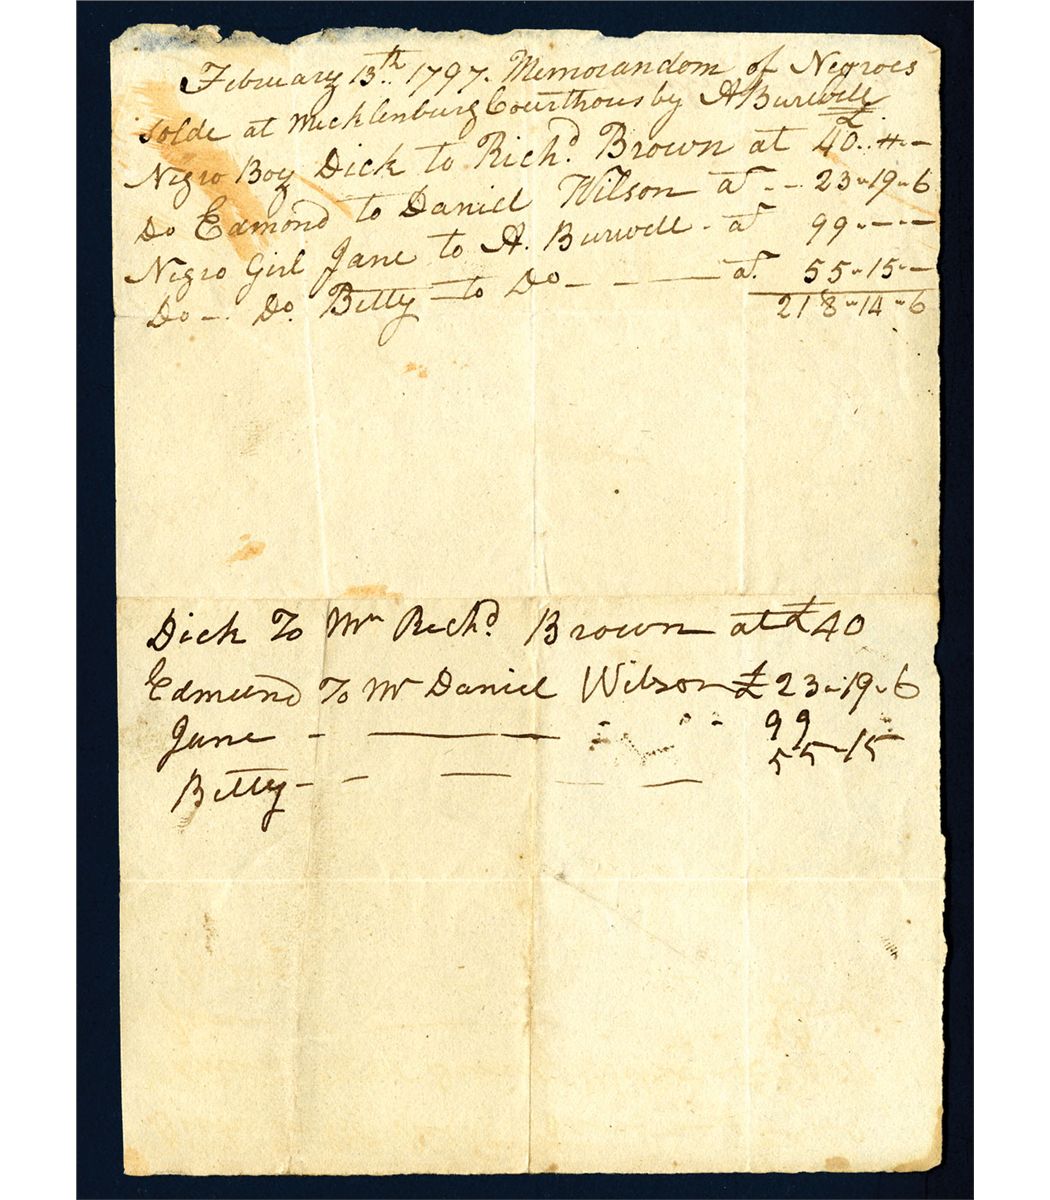 February 13th. 1797. Memorandom of Negroes
solde at Mecklenburg Courthous by A Burwell
£
Negro Boy Dick to Richd. Brown at 40.. " -
Do Edmond to Daniel Wilson at - - 23 " 19 " 6
Negro Girl Jane to A. Burwell - at 99 " - " -
Do - . Do. Betty - to Do - - - at. 55 " 15 " -
218 " 14 " 6
Dick To Mr Richd. Brown at £40
Edmund To Mr Daniel Wilson £23 " 19 " 6
Jane - — — - - - 99
Betty - - — — — 55 " 15